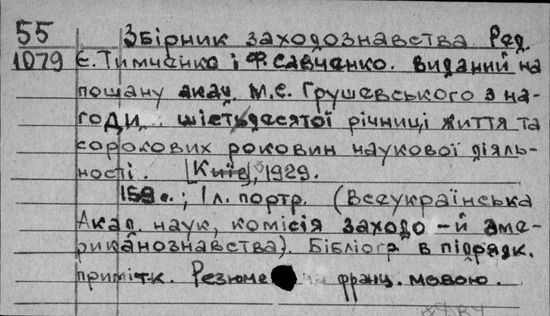 55 Збірник заходознавства Ред.
1079 Є. Тимченко і Ф. Савченко. Виданий на
пошану акад. М.С. Грушевського з на-
годи шістьдесятої річниці життя та
сорокових роковин наукової діяль-
ності. [Київ], 1929.
159 с.; 1 л. портр. (Всеукраїнська
Акад. наук, комісія заходо-й аме-
риканознавства). Бібліогр. в підрядк.
приміtк. Резюме франц. мовою.